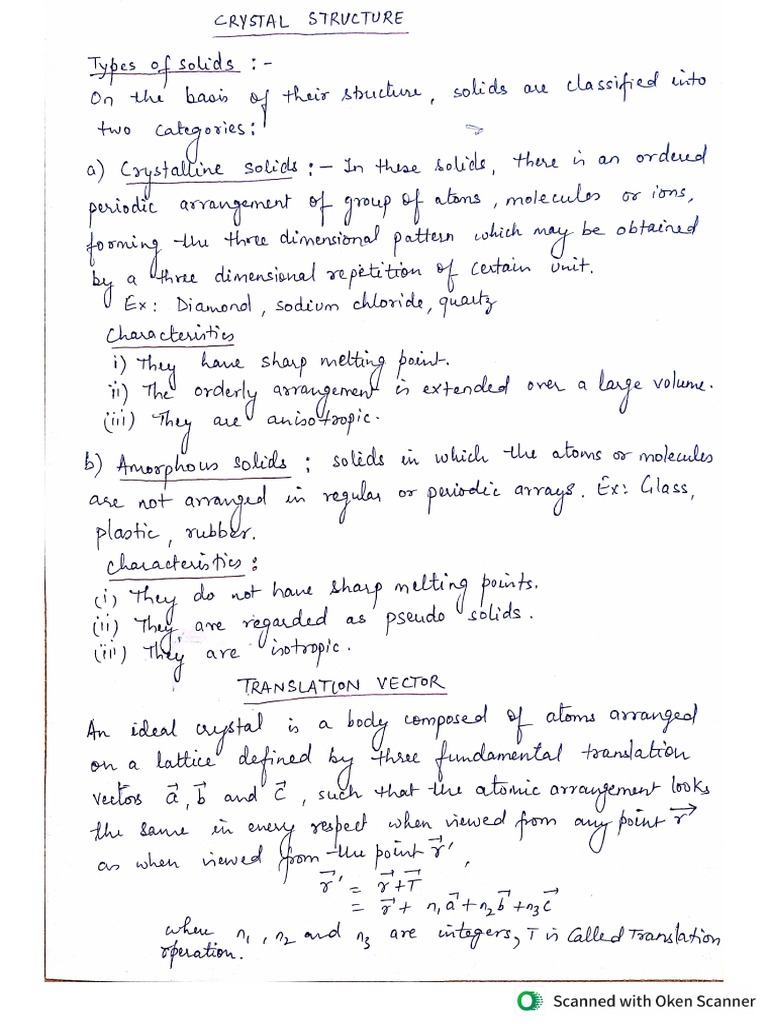 CRYSTAL STRUCTURE
Types of solids :-
On the basis of their structure, solids are classified into
two categories:
a) Crystalline solids :- In these solids, there is an ordered
periodic arrangement of group of atoms, molecules or ions,
forming the three dimensional pattern which may be obtained
by a three dimensional repetition of certain unit.
Ex: Diamond, sodium chloride, quartz
Characteristics
i) They have sharp melting point.
ii) The orderly arrangement is extended over a large volume.
(iii) They are anisotropic.
b) Amorphous solids ; solids in which the atoms or molecules
are not arranged in regular or periodic arrays. Ex: Glass,
plastic, rubber.
Characteristics :
(i) They do not have sharp melting points.
(ii) They are regarded as pseudo solids.
(iii) They are isotropic.
TRANSLATION VECTOR
An ideal crystal is a body composed of atoms arranged
on a lattice defined by three fundamental translation
vectors a⃗, b⃗ and c⃗, such that the atomic arrangement looks
the same in every respect when viewed from any point r⃗
as when viewed from the point r⃗',
r⃗' = r⃗+T⃗
= r⃗ + n₁a⃗+n₂b⃗+n₃c⃗
where n₁, n₂ and n₃ are integers, T is Called Translation
operation.
Scanned with Oken Scanner